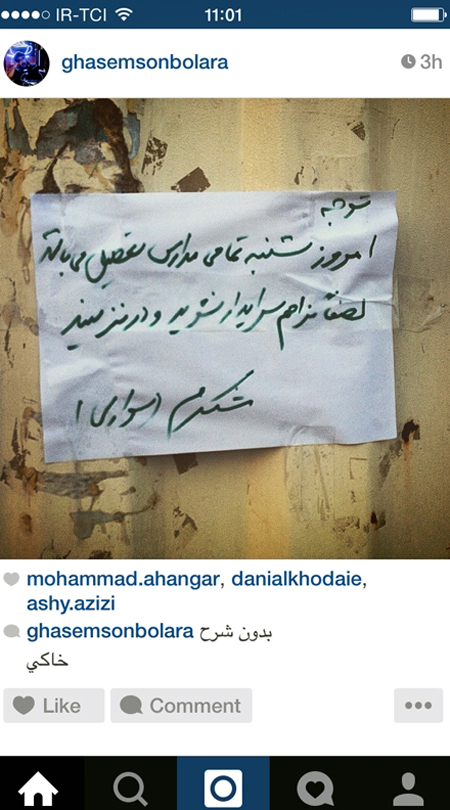 IR-TCI 11:01
ghasemsonbolara 3h
توجه
امروز شنبه تمامی مدارس تعطیل می باشد
لطفاً مزاحم سرایدار نشوید و در نزنید
تشکر
mohammad.ahangar, danialkhodaie,
ashy.azizi
ghasemsonbolara بدون شرح
خاكي
Like Comment